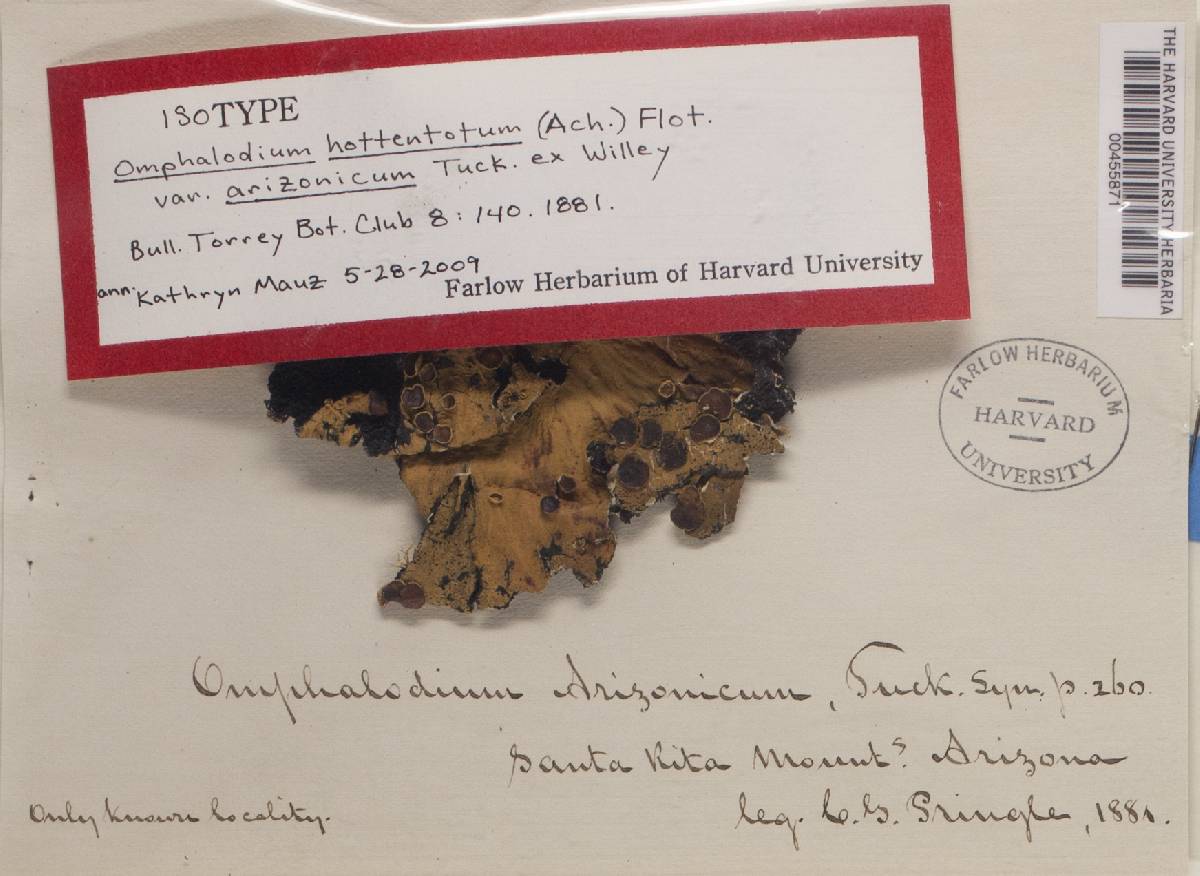 ISOTYPE
Omphalodium hottentotum (Ach.) Flot.
var. arizonicum Tuck. ex Willey
Bull. Torrey Bot. Club 8: 140. 1881.
ann. Kathryn Mauz 5-28-2009
Farlow Herbarium of Harvard University
THE HARVARD UNIVERSITY HERBARIA
00455871
FARLOW HERBARIUM
HARVARD
UNIVERSITY
Omphalodium Arizonicum, Tuck. Syn. p. 260.
Santa Rita Mounts. Arizona
Only known locality.
leg. C. G. Pringle, 1881.